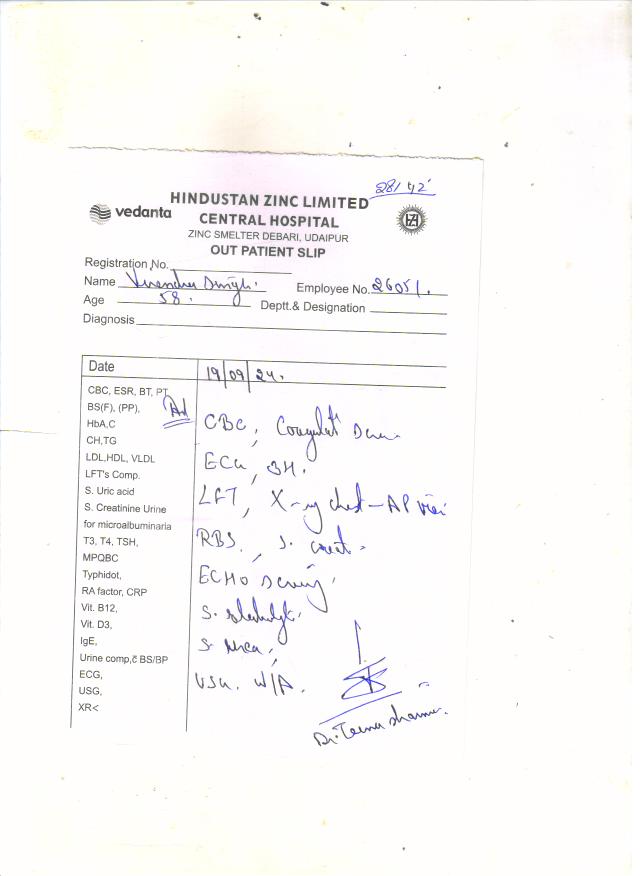 28/42
HINDUSTAN ZINC LIMITED
vedanta
CENTRAL HOSPITAL
ZINC SMELTER DEBARI, UDAIPUR
OUT PATIENT SLIP
Registration No.
Name Singh. Employee No. 26051.
Age 58. Deptt.& Designation
Diagnosis
Date 19/09/24.
CBC, ESR, BT, PT
BS(F), (PP),
HbA,C CBC,
CH,TG
LDL,HDL, VLDL ECG,
LFT's Comp.
S. Uric acid LFT, X-ray chest - AP view
S. Creatinine Urine
for microalbuminaria
T3, T4, TSH, RBS, S. creat.
MPQBC
Typhidot, ECHO
RA factor, CRP
Vit. B12, S.
Vit. D3,
IgE, S. urea,
Urine comp,č BS/BP
ECG, USG. W/A.
USG,
XR<
Dr. Sharma.